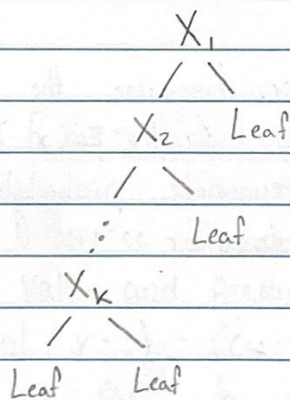 X₁
X₂ Leaf
⋮ Leaf
Xₖ
Leaf Leaf